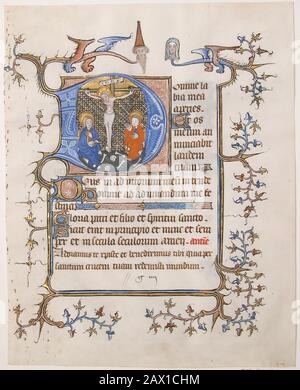 omine la
bia mea
aperies.
Et os
meum an
nunciabit
laudem
tuam.
Deus in adiutorium meum intende
domine ad adiuvandum me fe
stina.
Gloria patri et filio et spiritui sancto.
Sicut erat in principio et nunc et sem
per et in secula seculorum amen. ant
Adoramus te xpiste et benedicimus tibi quia per
sanctam crucem tuam redemisti mundum.
alamy
Image ID: 2AX1CHM
www.alamy.com